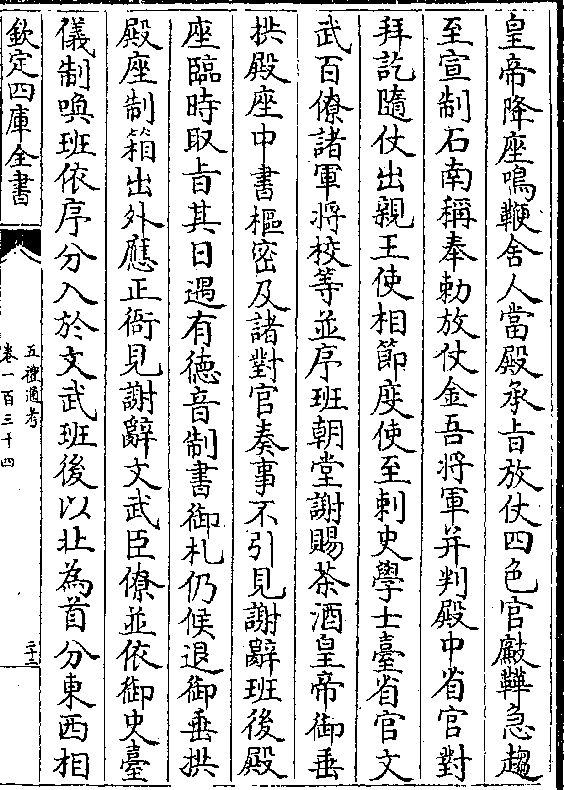 皇帝降座鳴鞭舍人當殿承旨放仗四色官㕑鞾急趨
至宣制石南稱奉勅放仗金吾將軍并判殿中省官對
拜訖隨仗出親王使相節度使至刺史學士臺省官文
武百僚諸軍將校等並序班朝堂謝賜茶酒皇帝御垂
拱殿座中書樞密及諸對官奏事不引見謝辭班後殿
座臨時取旨其日遇有德音制書御札仍候退御垂拱
殿座制箱出外應正衙見謝辭文武臣僚並依御史臺
儀制喚班依序分入於文武班後以北為首分東西相
欽定四庫全書
五禮通考
卷一百三十四